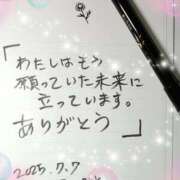 「わたしはもう
願っていた未来に
立っています。
ありがとう」
2025.7.7